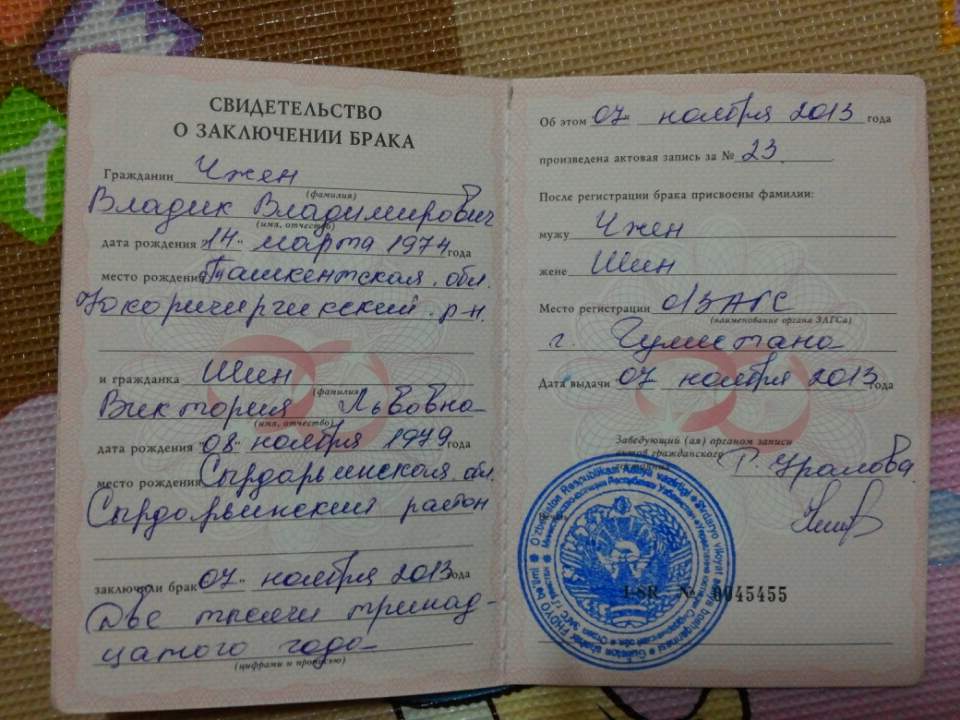 СВИДЕТЕЛЬСТВО
О ЗАКЛЮЧЕНИИ БРАКА
Гражданин Чжен
(фамилия)
Владик Владимирович
(имя, отчество)
дата рождения "14" марта 1974 года
место рождения Ташкентская обл.
Юкоричирчикский р-н.
и гражданка Шин
(фамилия)
Виктория Львовна
(имя, отчество)
дата рождения "08" ноября 1979 года
место рождения Сырдарьинская обл.
Сырдарьинский район
заключили брак "07" ноября 2013 года
Две тысячи тринад-
цатого года
(цифрами и прописью)
Об этом 07 ноября 2013 года
произведена актовая запись за № 23
После регистрации брака присвоены фамилии:
мужу Чжен
жене Шин
Место регистрации ОЗАГС
(наименование органа ЗАГСа)
г. Гулистана
Дата выдачи 07 ноября 2013 года
Заведующий (ая) органом записи
актов гражданского
Г. Уралова.
I-SR № 0045455